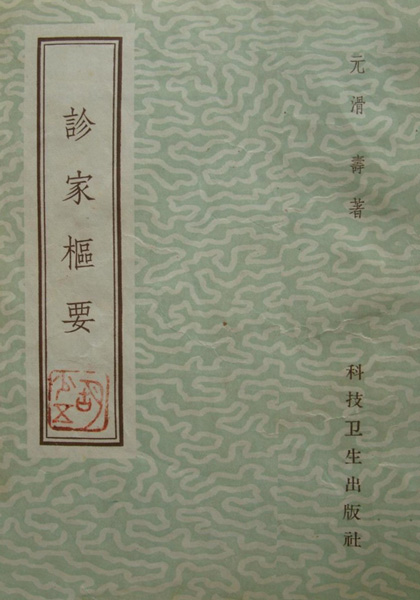 元滑壽著
診家樞要
科技卫生出版社